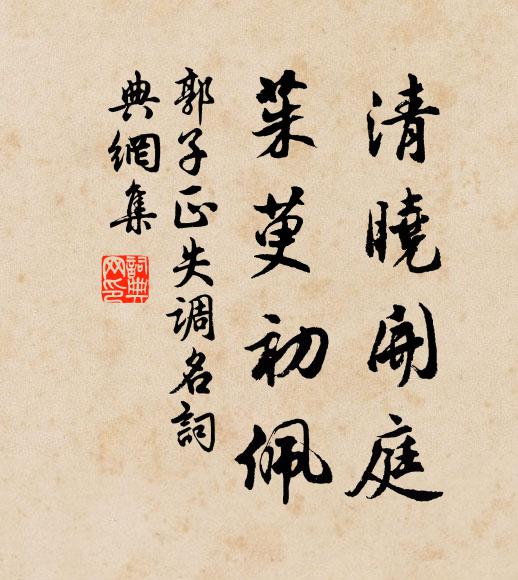 清曉開庭
茱萸初佩
郭子正失調名詞
典網集
詞典網印